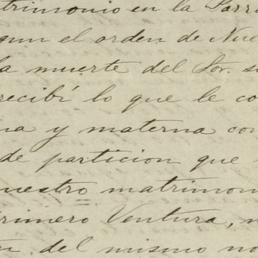 trimonio en la Parr
gun el orden de Nue
la muerte del Sor. s
recibí lo que le co
na y materna con
de particion que
nuestro matrimon
rimero Ventura,
del mismo no